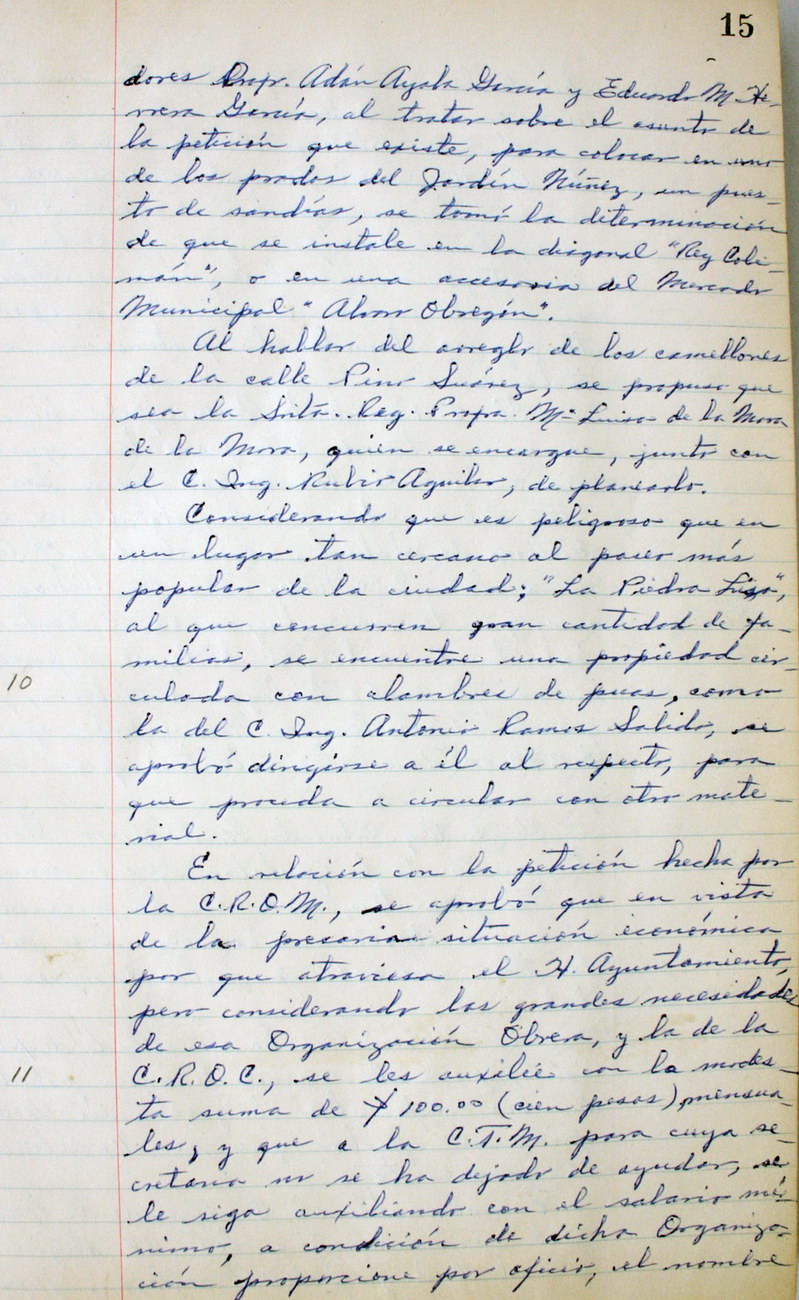 15
dores Propr. Adán Ayala García y Eduardo M. He-
rrera García, al tratar sobre el asunto de
la petición que existe, para colocar en uno
de los prados del Jardín Núñez, un pues-
to de sandías, se tomó la determinación
de que se instale en la diagonal "Rey Coli-
mán", o en una accesoria del Mercado
Municipal "Alvaro Obregón".
Al hablar del arreglo de los camellones
de la calle Pino Suárez, se propuso que
sea la Srita. Reg. Profra. Ma. Luisa de la Mora
de la Mora, quien se encargue, junto con
el C. Ing. Rubio Aguilar, de planearlo.
Considerando que es peligroso que en
un lugar tan cercano al paseo más
popular de la ciudad; "La Piedra Lisa",
al que concurren gran cantidad de fa-
milias, se encuentre una propiedad cir-
10
culada con alambres de puas, como
la del C. Ing. Antonio Ramos Salido, se
aprobó dirigirse a él al respecto, para
que proceda a circular con otro mate-
rial.
En relación con la petición hecha por
la C.R.O.M., se aprobó que en vista
de la presaria situación económica
por que atraviesa el H. Ayuntamiento,
pero considerando las grandes necesidades
de esa Organización Obrera, y la de la
11
C.R.O.C., se les auxilie con la modes-
ta suma de $100.00 (cien pesos), mensua-
les, y que a la C.T.M. para cuya se-
cretaria no se ha dejado de ayudar, se
le siga auxiliando con el salario mí-
nimo, a condición de dicha Organiza-
ción proporcione por oficio, el nombre